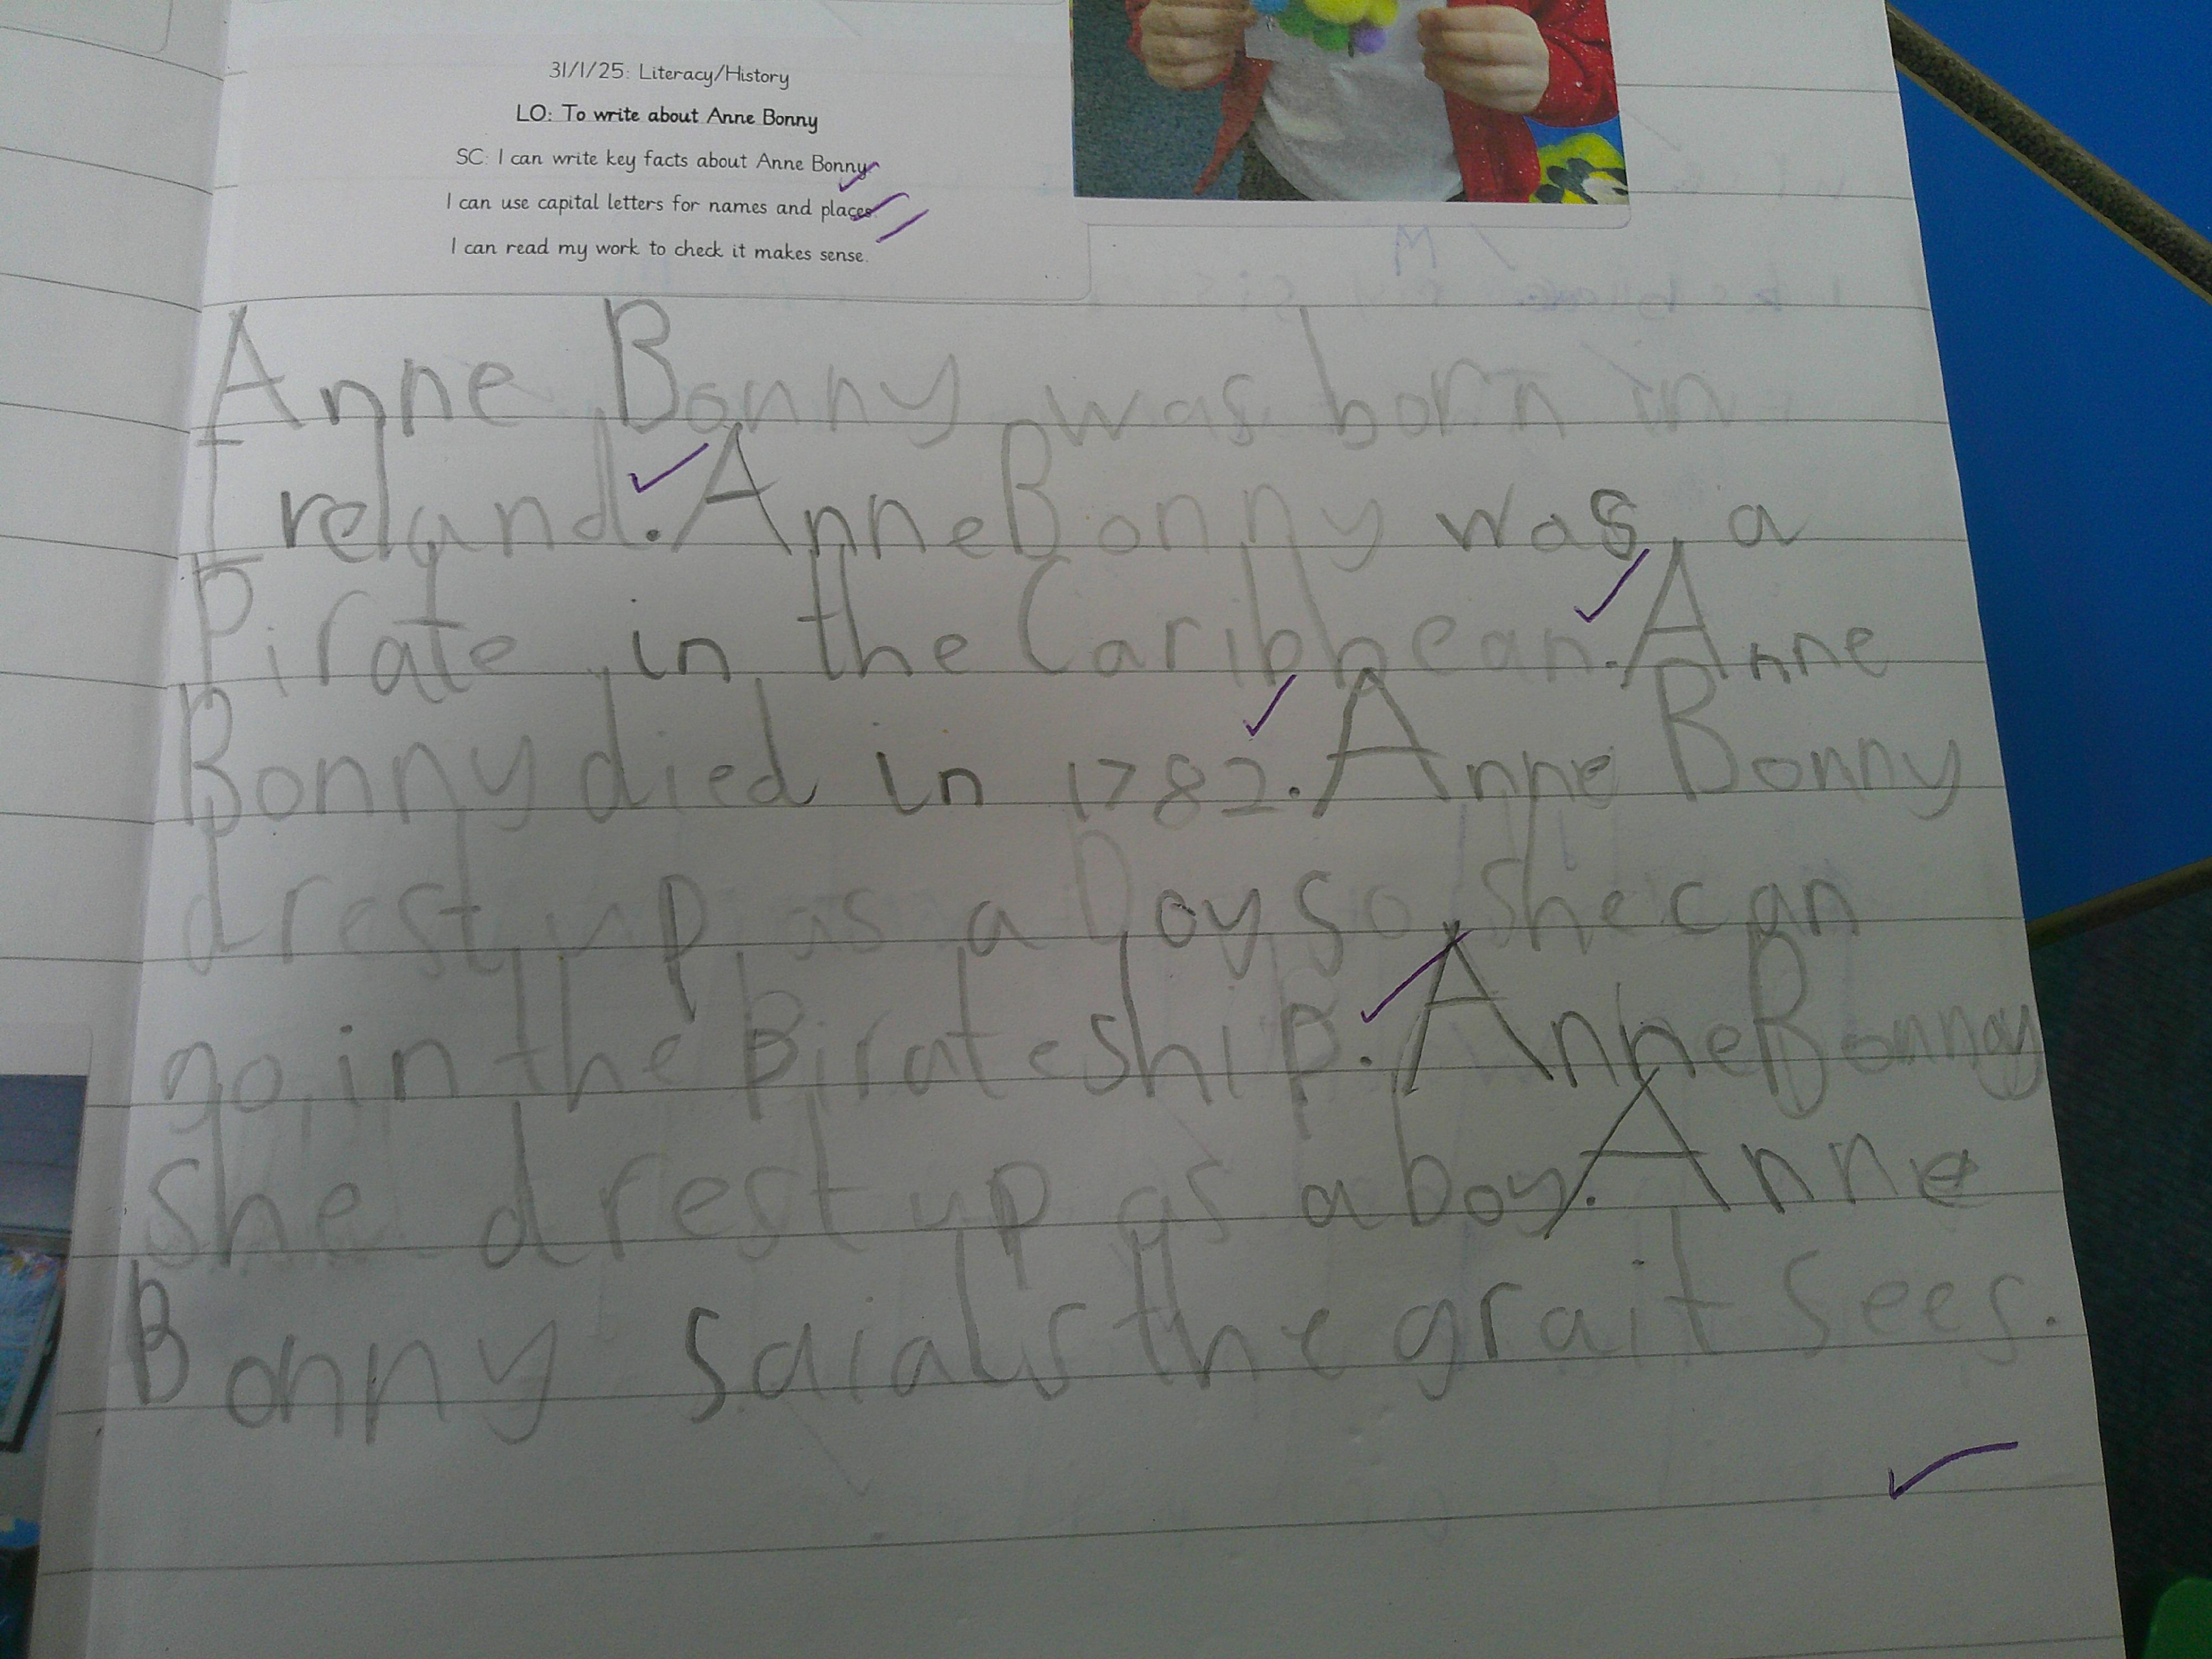 31/1/25: Literacy/History
LO: To write about Anne Bonny
SC: I can write key facts about Anne Bonny
I can use capital letters for names and places.
I can read my work to check it makes sense.
Anne Bonny was born in
Ireland. Anne Bonny was a
Pirate in the Caribbean. Anne
Bonny died in 1782. Anne Bonny
drest up as a boy so she can
go in the Pirate ship. Anne Bonnny
she drest up as a boy. Anne
Bonny the grait sees.